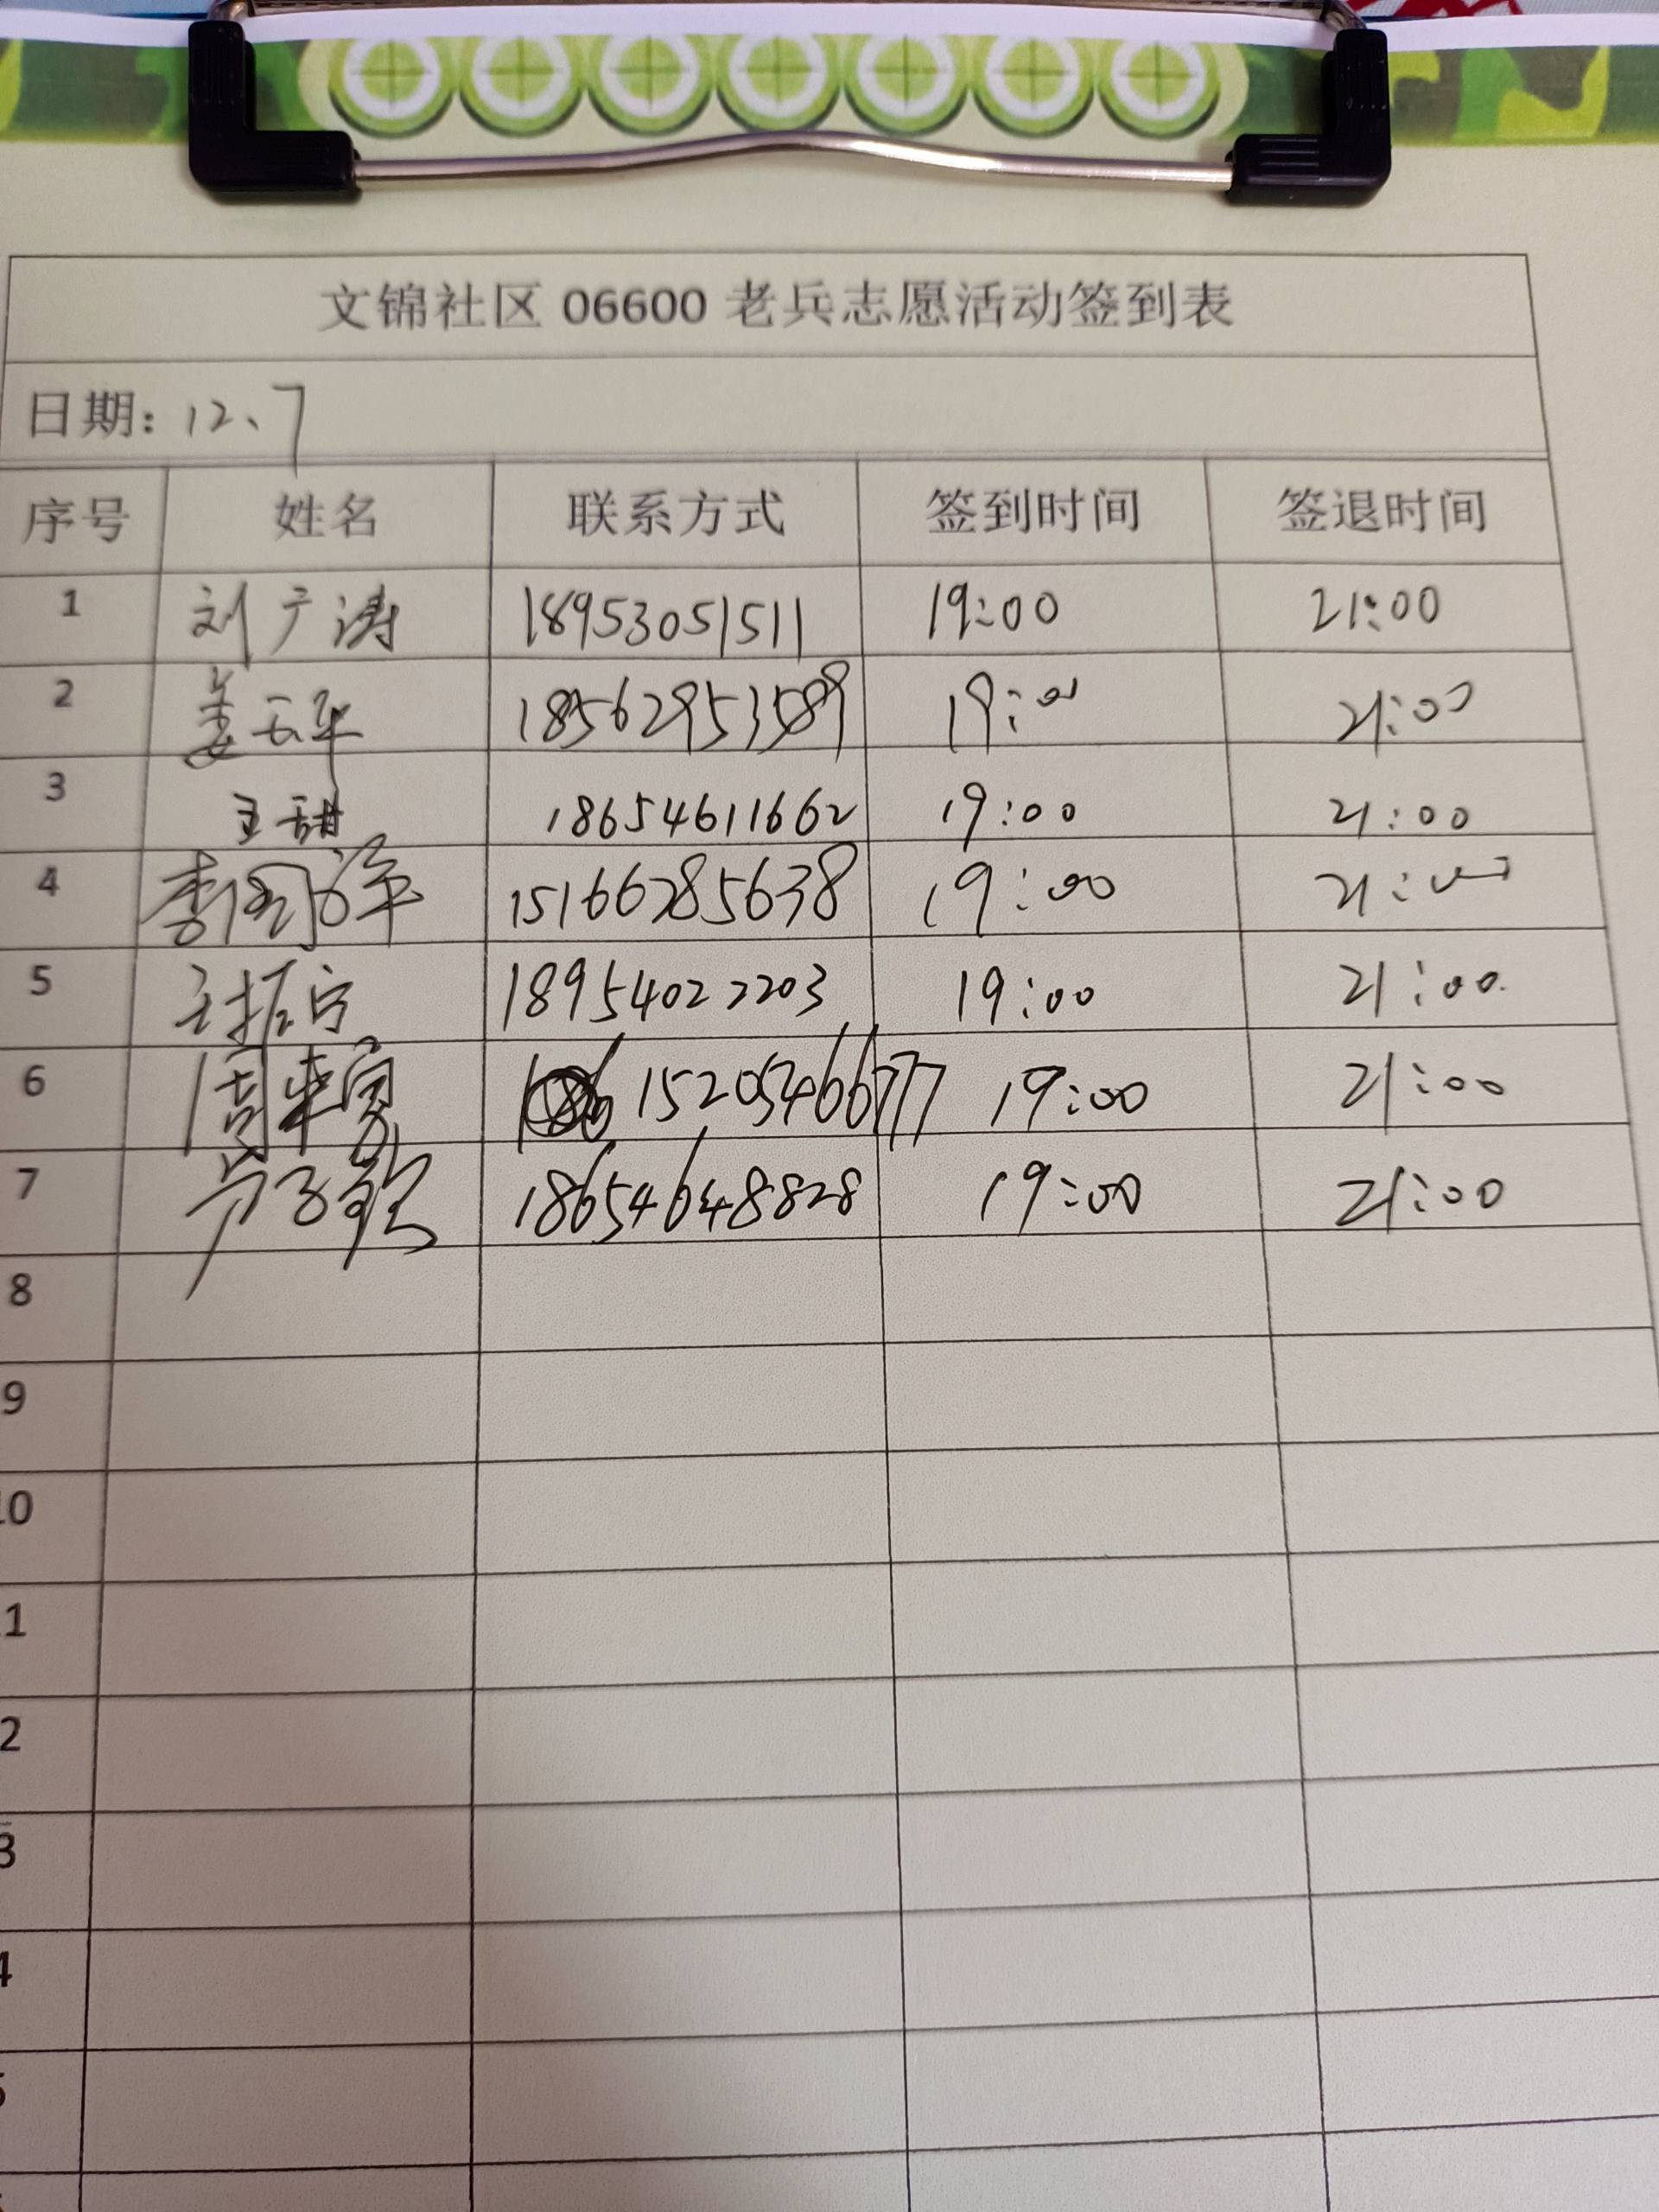 文锦社区 06600 老兵志愿活动签到表
日期: 12、7
序号 姓名 联系方式 签到时间 签退时间
1 刘广涛 18953051511 19:00 21:00
2 姜云平 18562953589 19:00 21:00
3 王甜 18654611662 19:00 21:00
4 李 15166285638 19:00 21:00
5 18954022203 19:00 21:00
6 周 15205466777 19:00 21:00
7 18654648828 19:00 21:00
8
9
10
11
2
3
4
5